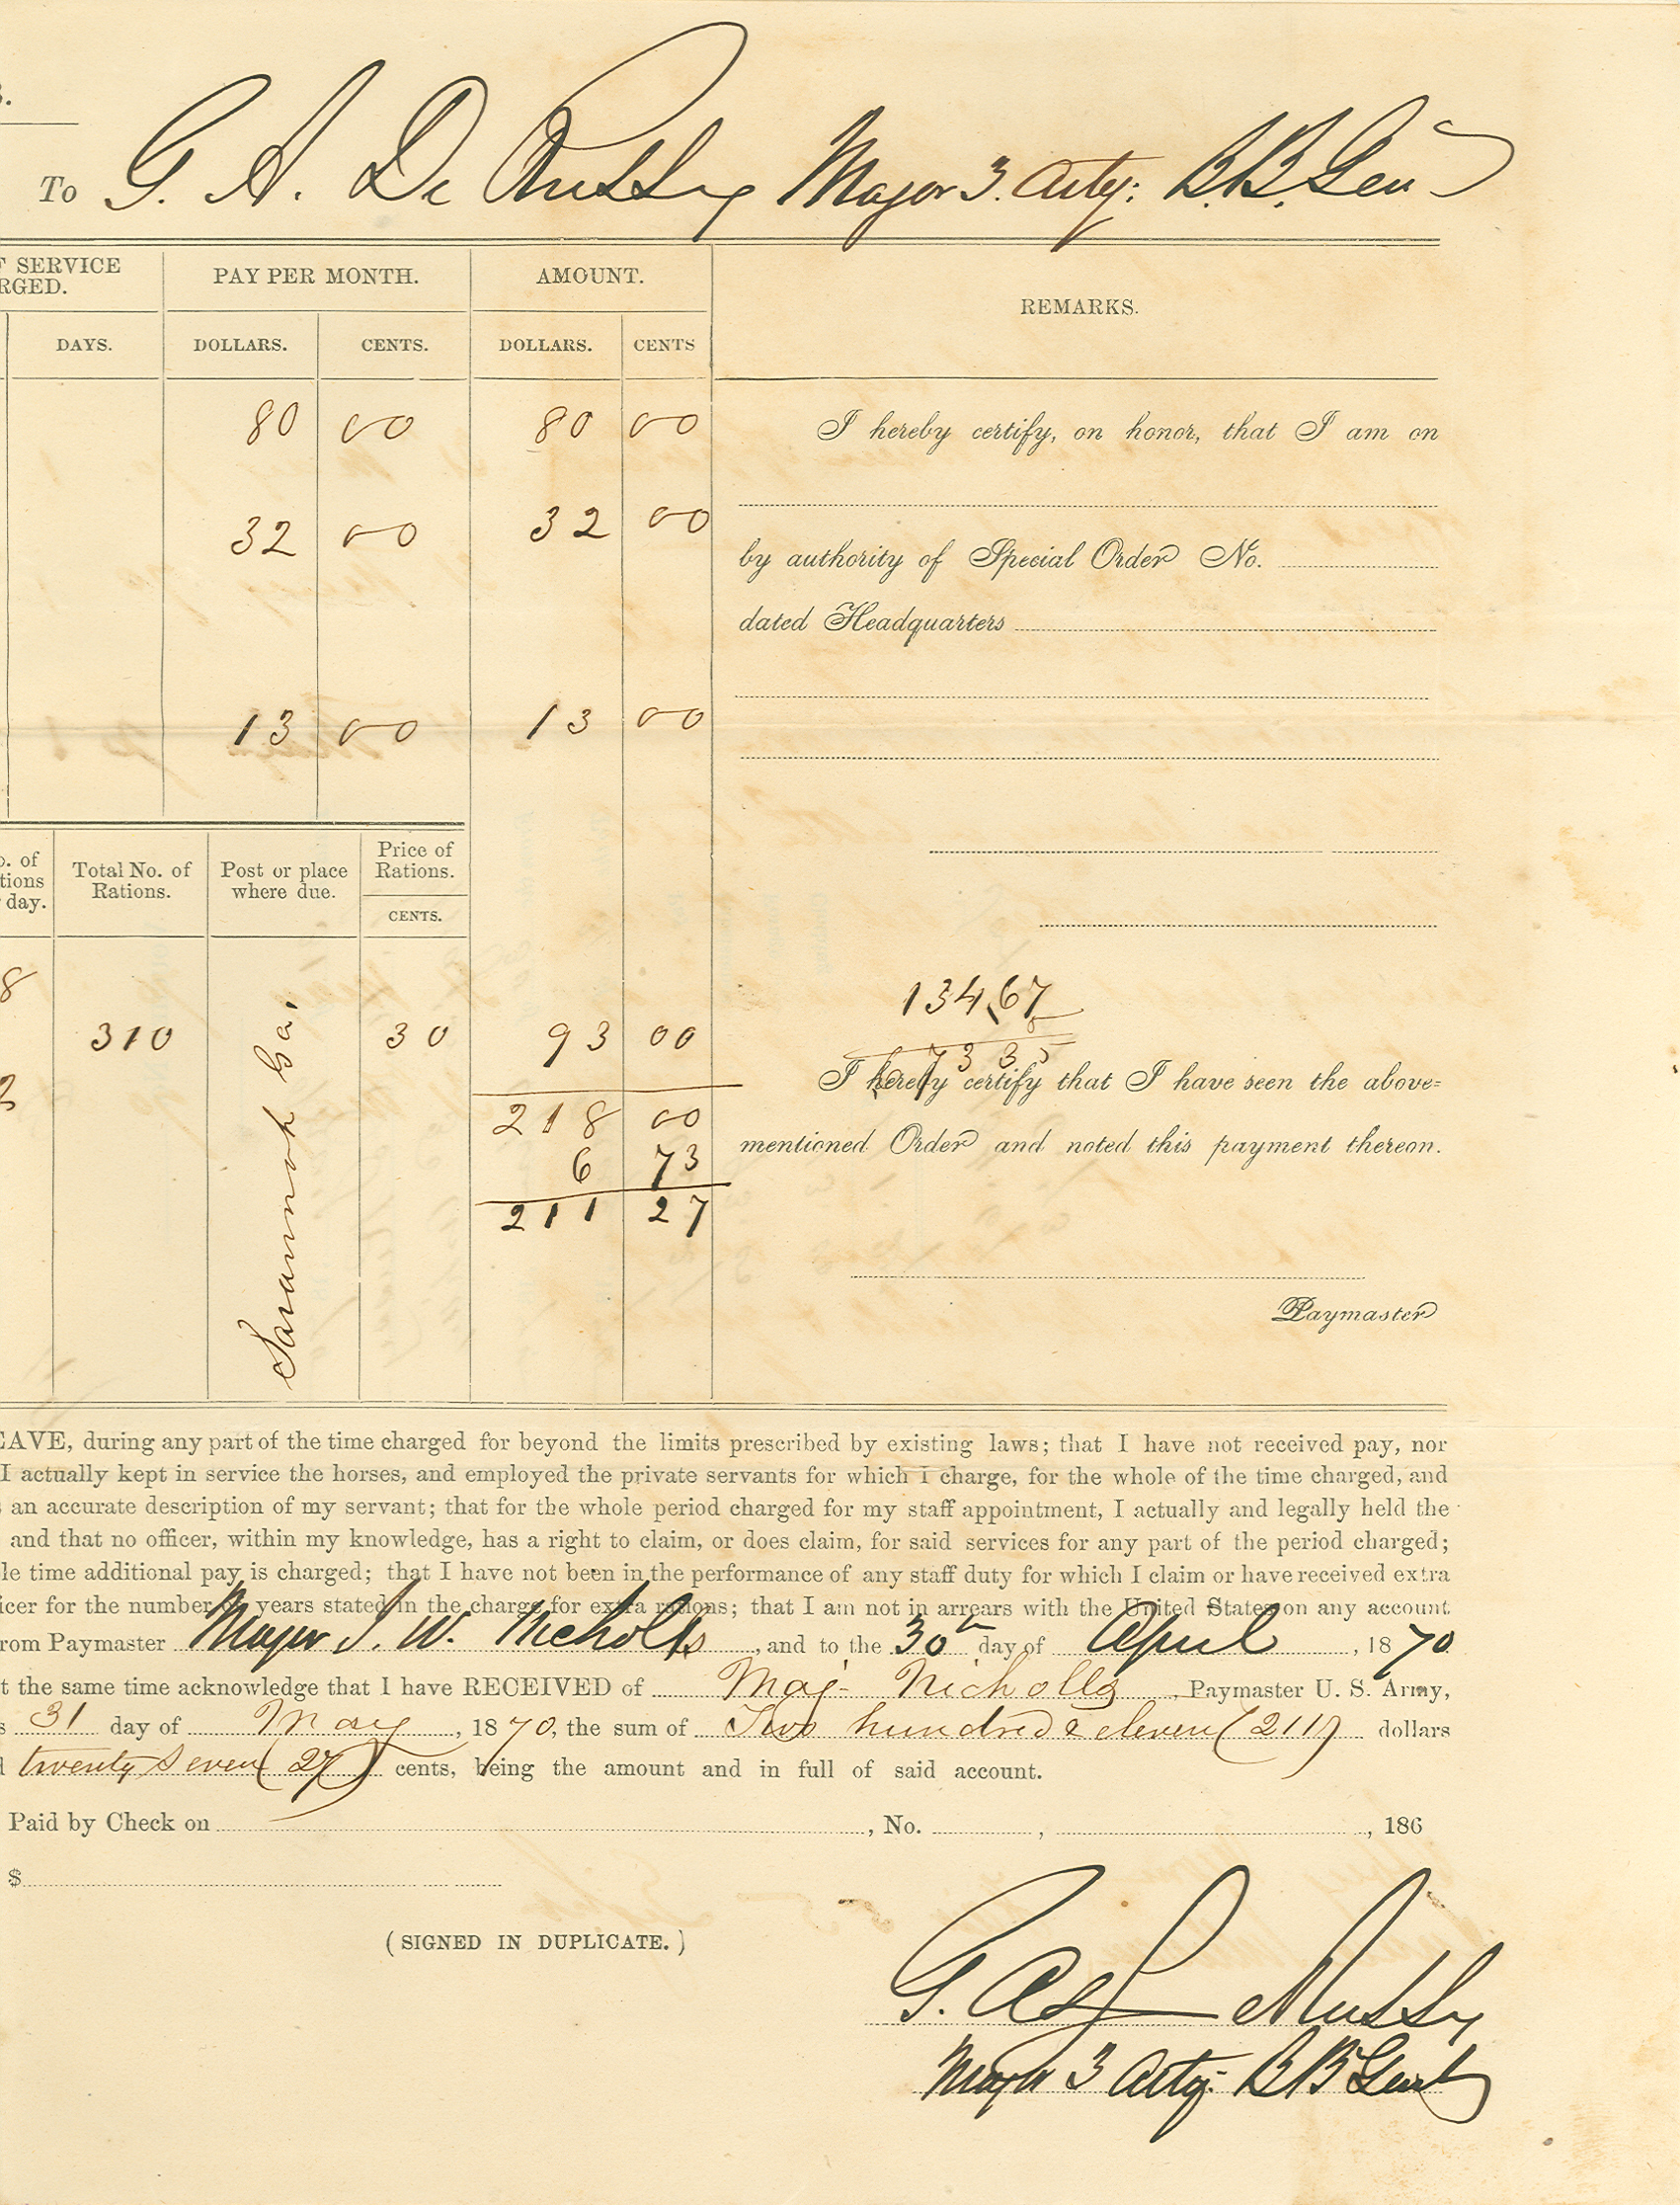 To G. A. De Russy Major 3. Arty: B. B. Gen
F SERVICE
RGED.
PAY PER MONTH.
AMOUNT.
REMARKS.
DAYS.
DOLLARS.
CENTS.
DOLLARS.
CENTS
80 00 80 00
I hereby certify, on honor, that I am on
32 00 32 00
by authority of Special Order No.
dated Headquarters
13 00 13 00
o. of
tions
day.
Total No. of
Rations.
Post or place
where due.
Price of
Rations.
CENTS.
8
310
Savannah Ga,
30
93 00
134,67
5
6 73 35
I hereby certify that I have seen the above-
2
218 00
mentioned Order and noted this payment thereon.
6 73
211 27
Paymaster
EAVE, during any part of the time charged for beyond the limits prescribed by existing laws; that I have not received pay, nor
I actually kept in service the horses, and employed the private servants for which I charge, for the whole of the time charged, and
s an accurate description of my servant; that for the whole period charged for my staff appointment, I actually and legally held the
and that no officer, within my knowledge, has a right to claim, or does claim, for said services for any part of the period charged;
le time additional pay is charged; that I have not been in the performance of any staff duty for which I claim or have received extra
icer for the number of years stated in the charge for extra rations; that I am not in arrears with the United States on any account
rom Paymaster Major S. W. Nicholls, and to the 30th day of April, 1870
t the same time acknowledge that I have RECEIVED of Maj. Nicholls Paymaster U. S. Army,
s 31 day of May, 1870, the sum of Two hundred & eleven (211) dollars
d twenty seven (27) cents, being the amount and in full of said account.
Paid by Check on , No. , , 186
$
(SIGNED IN DUPLICATE.)
G. A. De Russy
Major 3 Arty: B B Genl